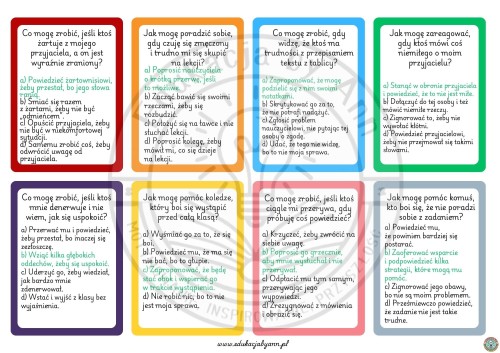 Co mogę zrobić, jeśli ktoś
żartuje z mojego
przyjaciela, a on jest
wyraźnie zraniony?
a) Powiedzieć żartownisiowi,
żeby przestał, bo jego słowa
ranią.
b) Śmiać się razem
z żartami, żeby nie być
„odmieńcem”.
c) Opuścić przyjaciela, żeby
nie być w niekomfortowej
sytuacji.
d) Samemu zrobić coś, żeby
odwrócić uwagę od
przyjaciela.
Jak mogę poradzić sobie,
gdy czuję się zmęczony
i trudno mi się skupić
na lekcji?
a) Poprosić nauczyciela
o krótką przerwę, jeśli
to możliwe.
b) Zacząć bawić się swoimi
rzeczami, żeby się
rozbudzić.
c) Położyć się na ławce i nie
słuchać lekcji.
d) Poprosić kolegę, żeby
mówił mi, co się dzieje
na lekcji.
Co mogę zrobić, gdy
widzę, że ktoś ma
trudności z przepisaniem
tekstu z tablicy?
a) Zaproponować, że mogę
podzielić się z nim swoimi
notatkami.
b) Skrytykować go za to,
że nie potrafi nadążyć.
c) Zgłosić problem
nauczycielowi, nie pytając tej
osoby o zgodę.
d) Udać, że tego nie widzę,
bo to nie moja sprawa.
Jak mogę zareagować,
gdy ktoś mówi coś
niemiłego o moim
przyjacielu?
a) Stanąć w obronie przyjaciela
i powiedzieć, że to nie jest miłe.
b) Dołączyć do tej osoby i też
mówić niemiłe rzeczy.
c) Zignorować to, żeby nie
wywołać kłótni.
d) Powiedzieć przyjacielowi,
żeby nie przejmował się takimi
słowami.
Co mogę zrobić, jeśli ktoś
mnie denerwuje i nie
wiem, jak się uspokoić?
a) Przerwać mu i powiedzieć,
żeby przestał, bo inaczej się
zezłoszczę.
b) Wziąć kilka głębokich
oddechów, żeby się uspokoić.
c) Uderzyć go, żeby wiedział,
jak bardzo mnie
zdenerwował.
d) Wstać i wyjść z klasy bez
wyjaśnienia.
Jak mogę pomóc koledze,
który boi się wystąpić
przed całą klasą?
a) Wyśmiać go za to, że się
boi.
b) Powiedzieć mu, że ma się
nie bać, bo to głupie.
c) Zaproponować, że będę
stać obok i wspierać go
w trakcie wystąpienia.
d) Nie robić nic, bo to nie
jest moja sprawa.
Co mogę zrobić, jeśli ktoś
ciągle mi przerywa, gdy
próbuję coś powiedzieć?
a) Krzyczeć, żeby zwrócić na
siebie uwagę.
b) Poprosić go grzecznie,
aby mnie wysłuchał i nie
przerywał.
c) Odpłacić mu tym samym,
przerywając jego
wypowiedzi.
d) Zrezygnować z mówienia
i obrazić się.
Jak mogę pomóc komuś,
kto boi się, że nie poradzi
sobie z zadaniem?
a) Powiedzieć mu,
że powinien bardziej się
postarać.
b) Zaoferować wsparcie
i podpowiedzieć kilka
strategii, które mogą mu
pomóc.
c) Zignorować jego obawy,
bo nie są moim problemem.
d) Prześmiewczo powiedzieć,
że zadanie nie jest takie
trudne.
www.edukacjabyann.pl